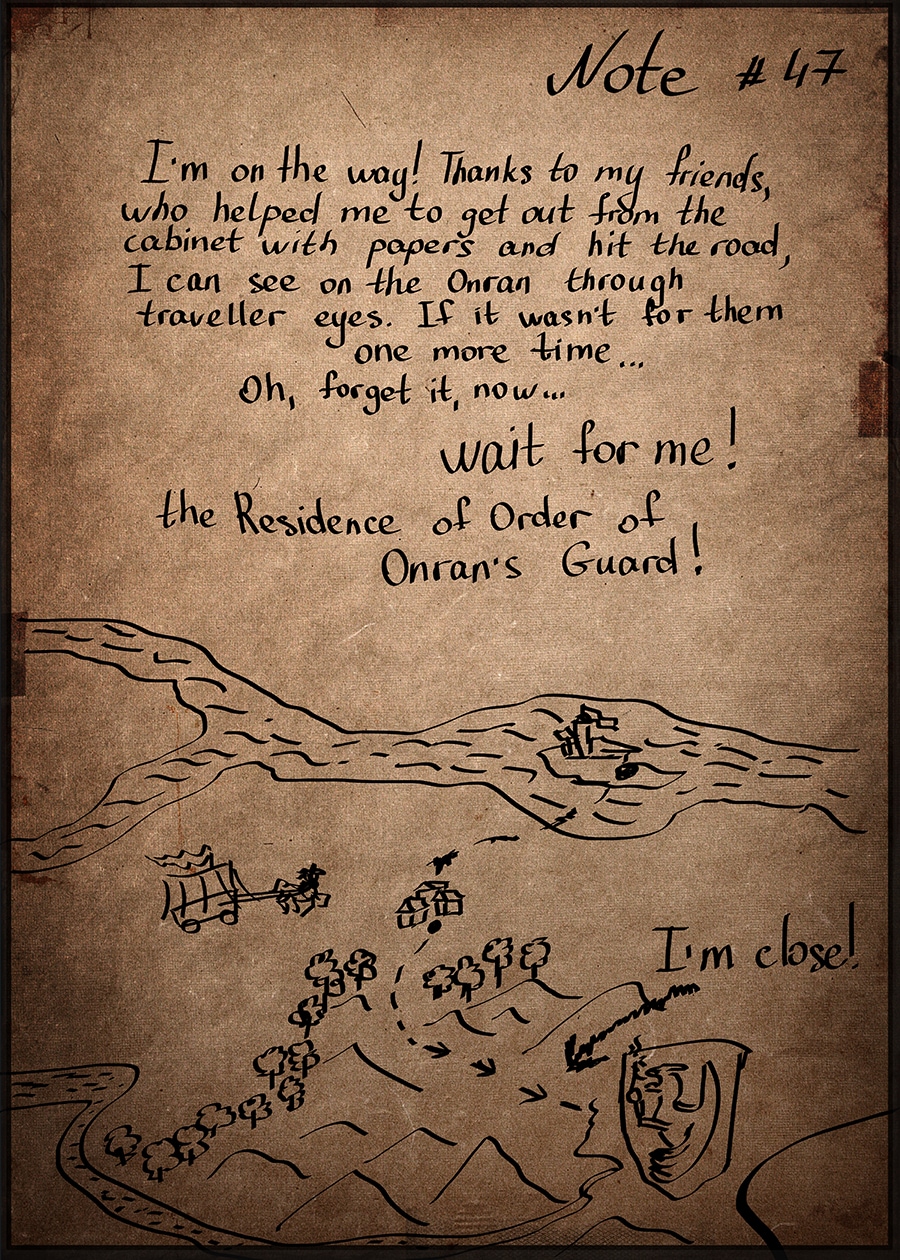 Note #47
I'm on the way! Thanks to my friends,
who helped me to get out from the
cabinet with papers and hit the road,
I can see on the Onran through
traveller eyes. If it wasn't for them
one more time...
Oh, forget it, now...
wait for me!
the Residence of Order of
Onran's Guard!
I'm close!